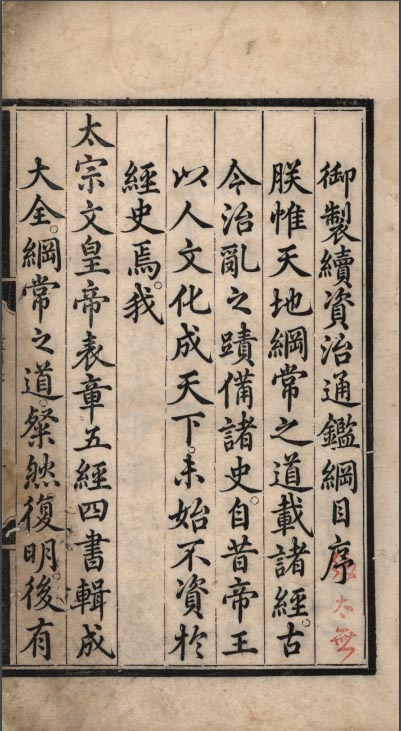 御製續資治通鑑綱目序
朕惟天地綱常之道載諸經。古
今治亂之蹟備諸史。自昔帝王
以人文化成天下。未始不資於
經史焉。我
太宗文皇帝表章五經四書輯成
大全。綱常之道。粲然復明。後有